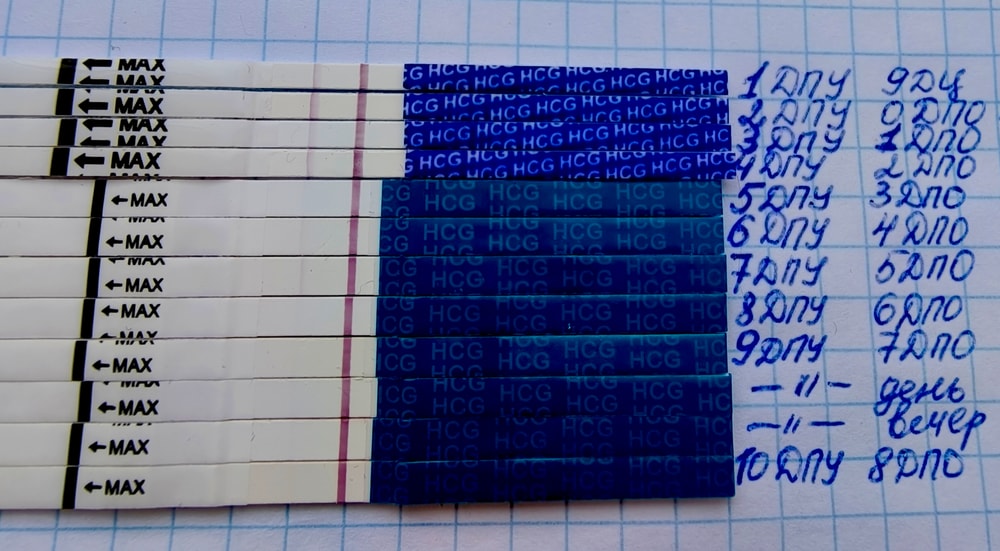 ← MAX HCG HCG HCG HCG HCG 1 ДПУ 9 ДЦ
← MAX HCG HCG HCG HCG HCG
← MAX HCG HCG HCG HCG HCG 2 ДПУ 0 ДПО
← MAX HCG HCG HCG HCG HCG 3 ДПУ 1 ДПО
← MAX HCG HCG HCG HCG HCG 4 ДПУ 2 ДПО
← MAX HCG HCG HCG HCG 5 ДПУ 3 ДПО
← MAX HCG HCG HCG HCG 6 ДПУ 4 ДПО
← MAX HCG HCG HCG HCG 7 ДПУ 5 ДПО
← MAX HCG HCG HCG HCG 8 ДПУ 6 ДПО
← MAX HCG HCG HCG HCG 9 ДПУ 7 ДПО
← MAX HCG HCG HCG HCG — " — день
← MAX HCG HCG HCG HCG — " — вечер
← MAX HCG HCG HCG HCG 10 ДПУ 8 ДПО